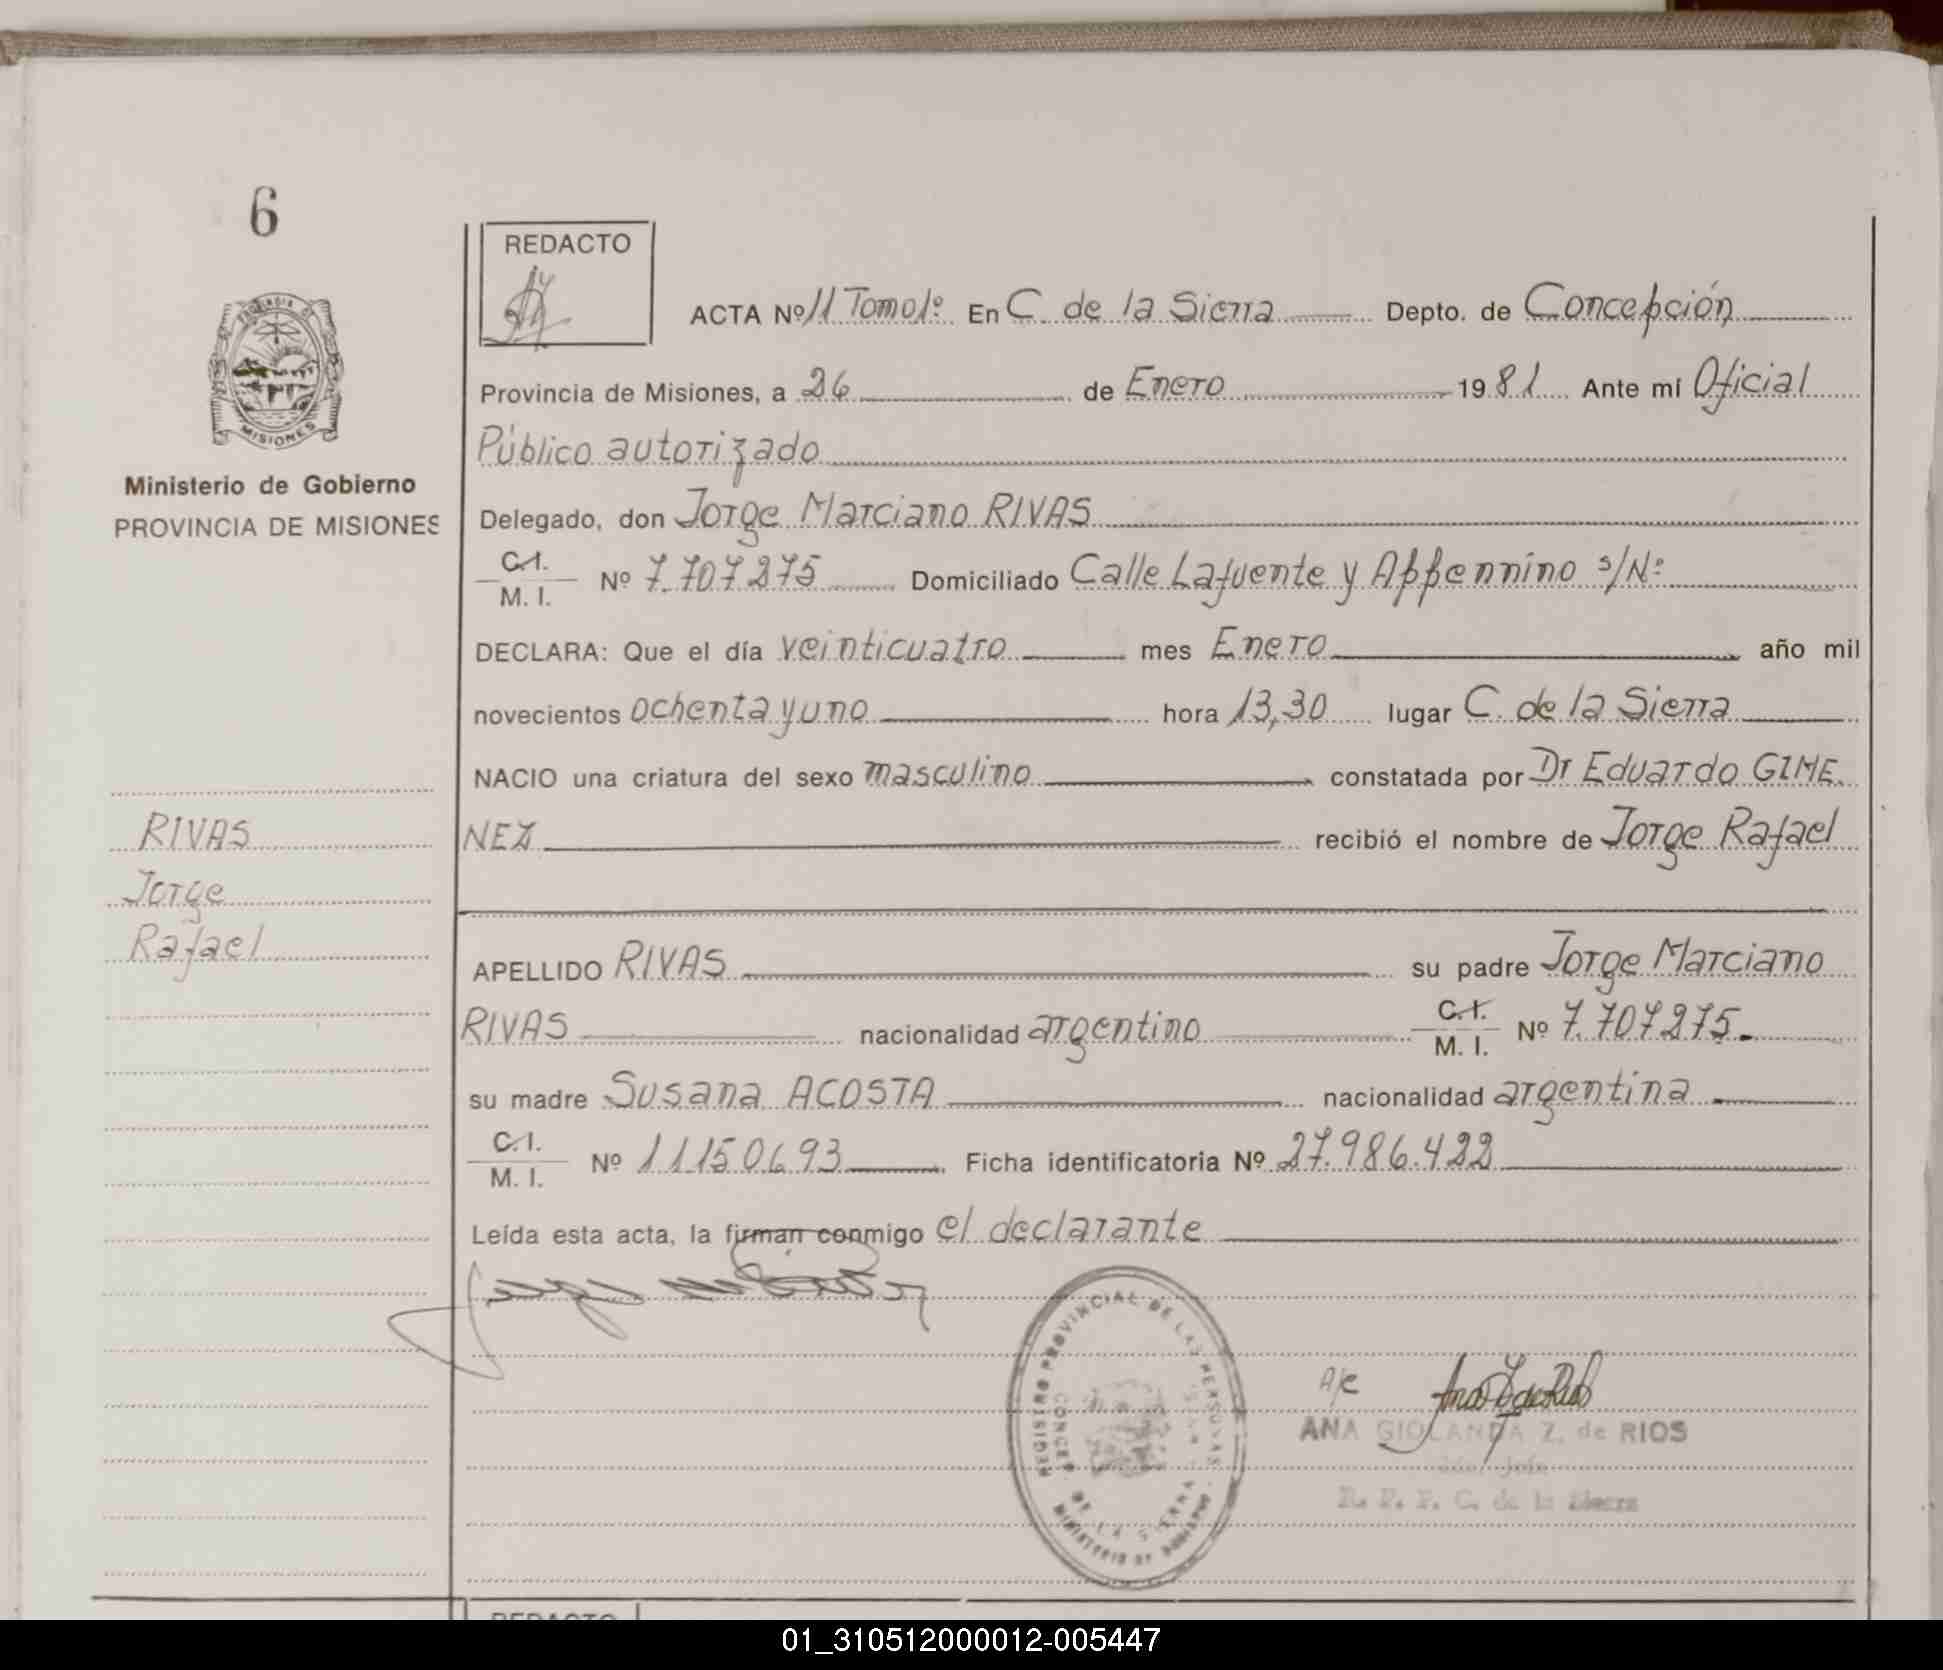 6
REDACTO
ACTA Nº 11 Tomo 1º En C. de la Sierra Depto. de Concepción
Provincia de Misiones, a 26 de Enero 1981 Ante mí Oficial
Público autorizado
MISIONES
Ministerio de Gobierno
PROVINCIA DE MISIONES
Delegado, don Jorge Marciano RIVAS
C.I.
M. I. Nº 7.707.275 Domiciliado Calle Lafuente y Appennino s/Nº
DECLARA: Que el día veinticuatro mes Enero año mil
novecientos ochenta y uno hora 13,30 lugar C. de la Sierra
NACIO una criatura del sexo masculino constatada por Dr Eduardo GIME.
NEZ recibió el nombre de Jorge Rafael
RIVAS
Jorge
Rafael
APELLIDO RIVAS su padre Jorge Marciano
RIVAS nacionalidad argentino C.I.
M. I. Nº 7.707.275.
su madre Susana ACOSTA nacionalidad argentina
C.I.
M. I. Nº 11150693 Ficha identificatoria Nº 27.986.422
Leída esta acta, la firman conmigo el declarante
REGISTRO PROVINCIAL DE LAS PERSONAS
CONCEP. DE LA SIERRA
MINISTERIO DE GOBIERNO
A/c
ANA GIOLANDA Z. de RIOS
R. P. P. C. de la Sierra
REDACTO
01_310512000012-005447